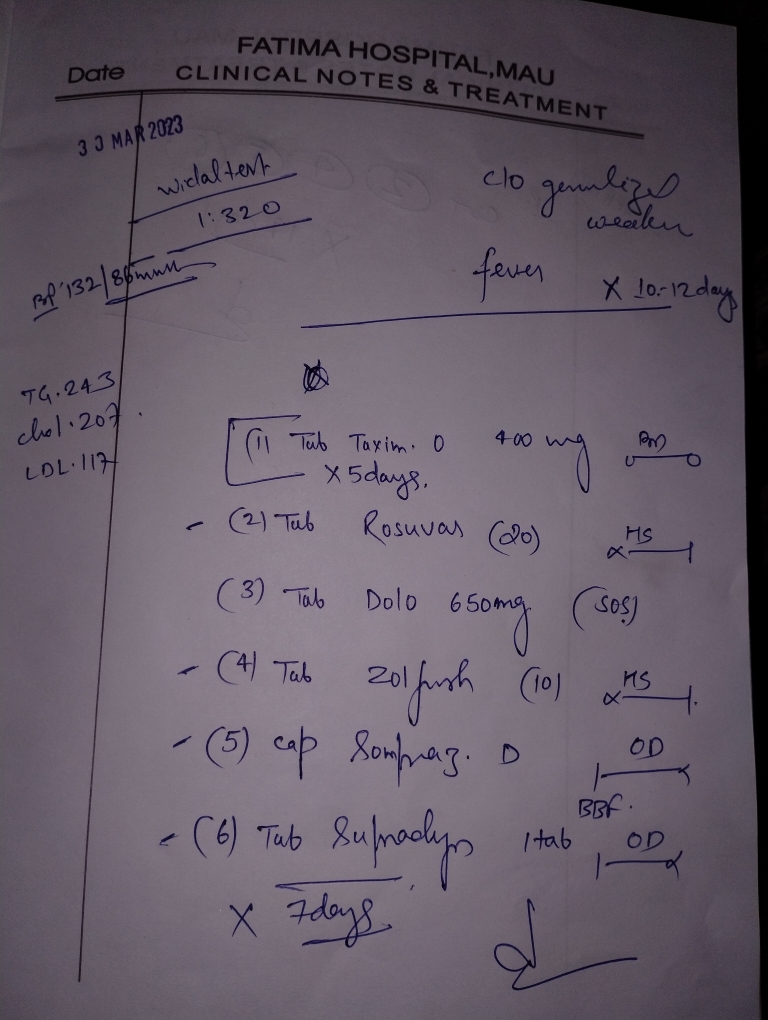 FATIMA HOSPITAL,MAU
Date CLINICAL NOTES & TREATMENT
30 MAR 2023
widal test
1:320
c/o genralized
weakn
BP 132/86mmH
fever X 10-12 days
TG. 243
chol. 207.
LDL. 117
(1) Tab Taxim. O 400 mg BD
X 5days.
- (2) Tab Rosuvas (20) HS
(3) Tab Dolo 650mg (SOS)
- (4) Tab Zolfresh (10) HS
- (5) cap Sompraz. D OD
BBF.
- (6) Tab Supradyn 1tab OD
X 7days